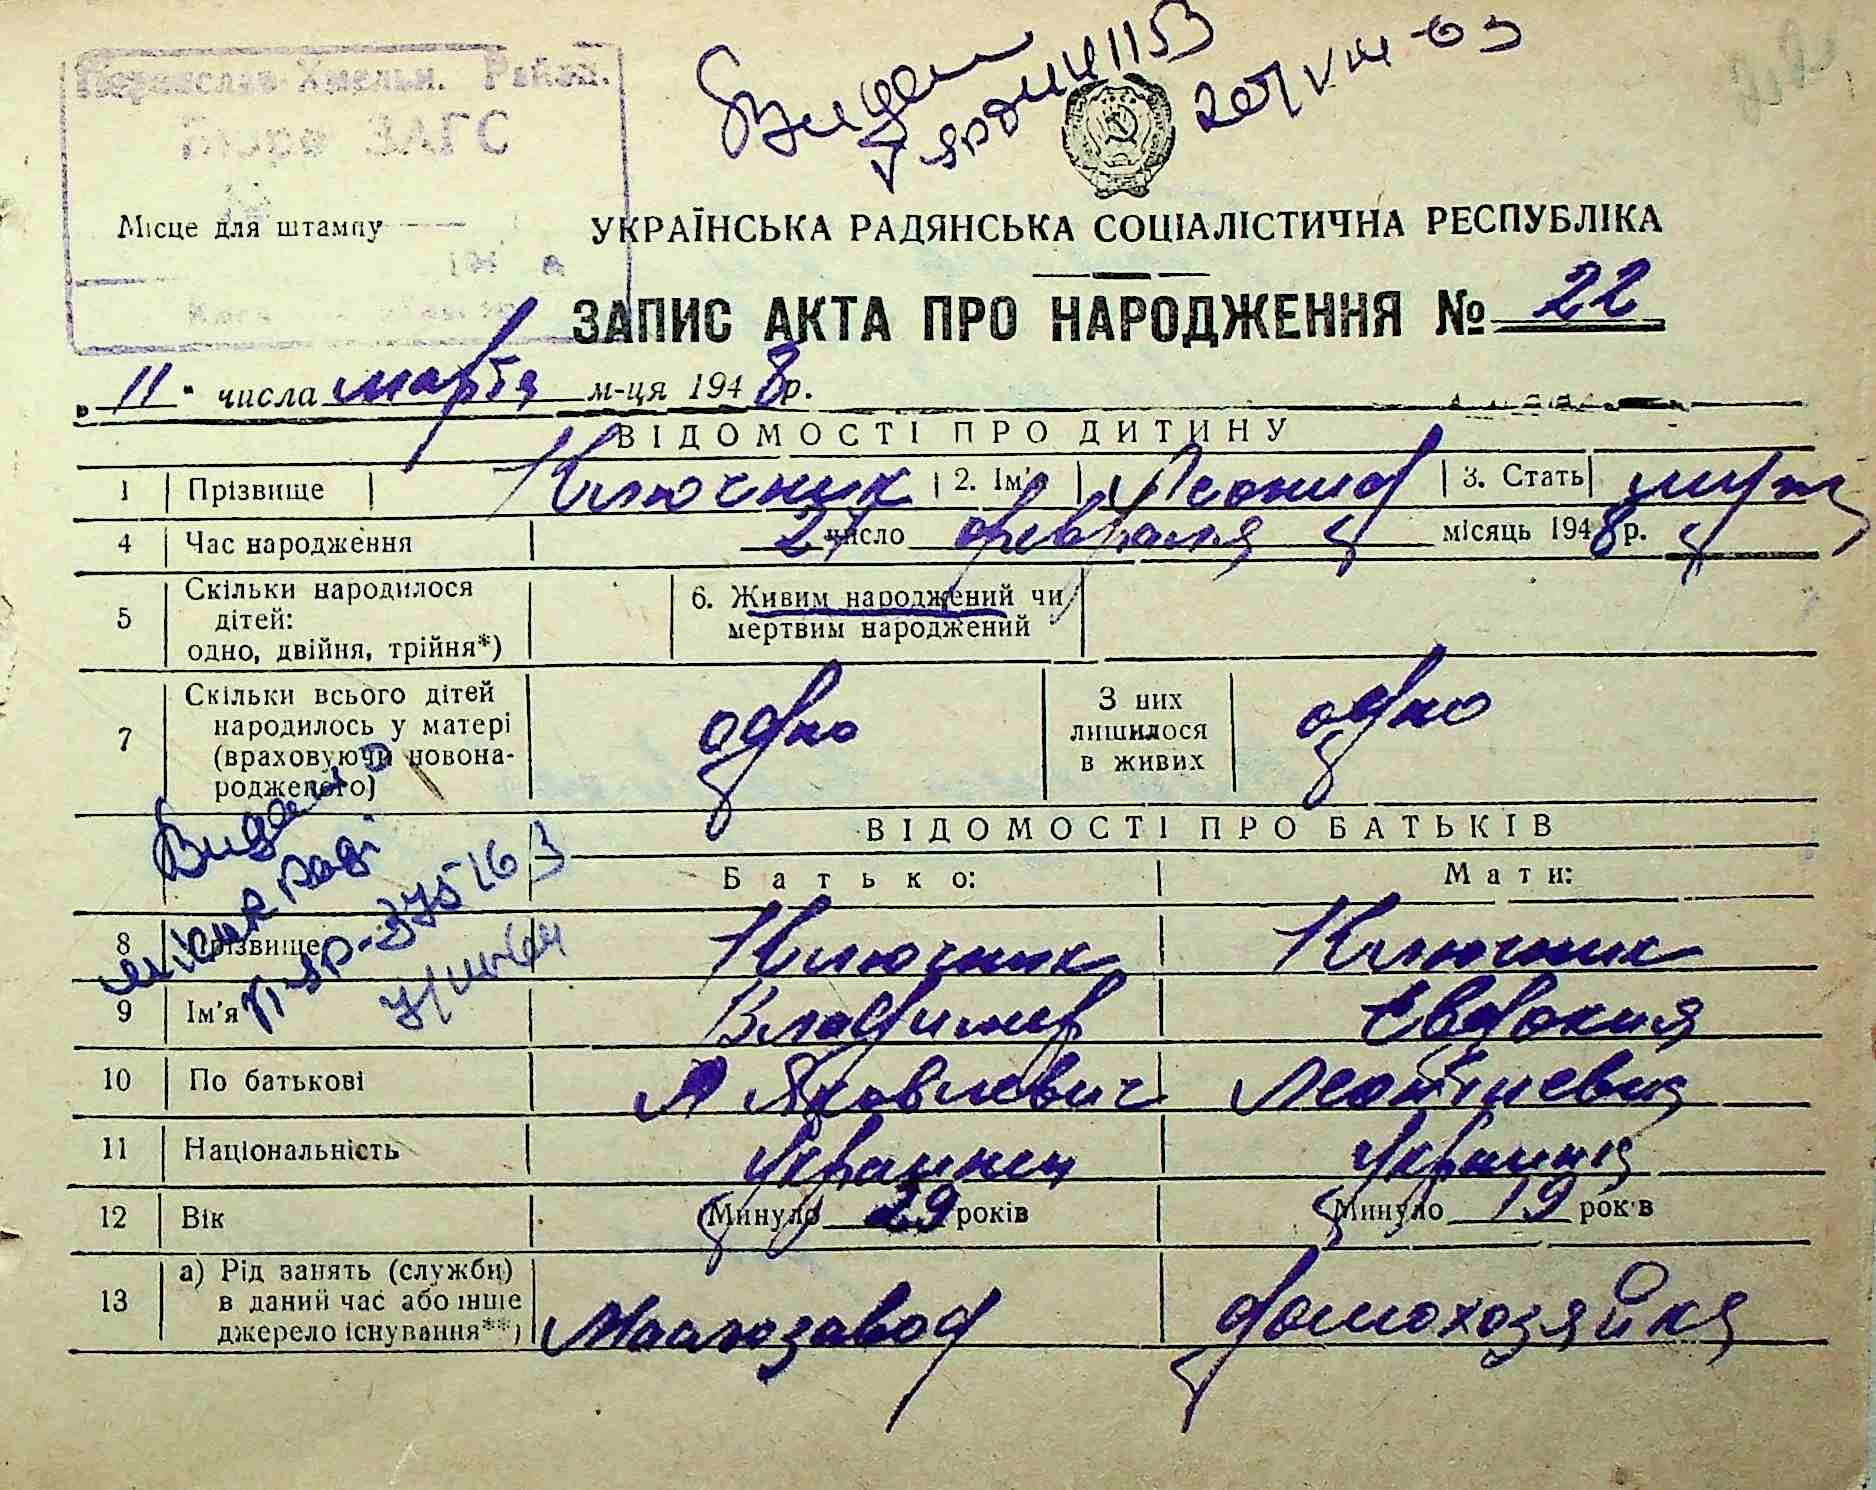 Видан
V ЯР 011153
20/VIII-63
Переяслав-Хмельн. Район.
Бюро ЗАГС
Місце для штампу
УКРАЇНСЬКА РАДЯНСЬКА СОЦІАЛІСТИЧНА РЕСПУБЛІКА
ЗАПИС АКТА ПРО НАРОДЖЕННЯ № 22
„11" числа марта м-ця 1948 р.
ВІДОМОСТІ ПРО ДИТИНУ
1 Прізвище Ключник 2. Ім'я Леонид 3. Стать муж
4 Час народження число февраля місяць 1948 р.
5 Скільки народилося дітей: одно, двійня, трійня*) 6. Живим народжений чи мертвим народжений
7 Скільки всього дітей народилось у матері (враховуючи новонародженого) одно З них лишилося в живих одно
Видано
міськ раді
ЯР-375163
ВІДОМОСТІ ПРО БАТЬКІВ
Батько: Мати:
8 Прізвище Ключник Ключник
9 Ім'я Владимир Евдокия
10 По батькові Яковлевич
11 Національність Украинец Украинка
12 Вік Минуло 29 років Минуло 19 років
13 а) Рід занять (служби) в даний час або інше джерело існування**) Маслозавод домохозяйка